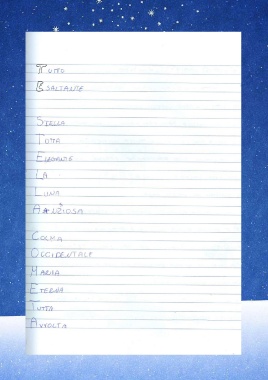 TUTTO
ESALTANTE
STELLA
TUTTA
ELEGANTE
LA
LUNA
ANSIOSA
CODHA
OCCIDENTALE
MARIA
ETERNA
TUTTA
AVVOLTA